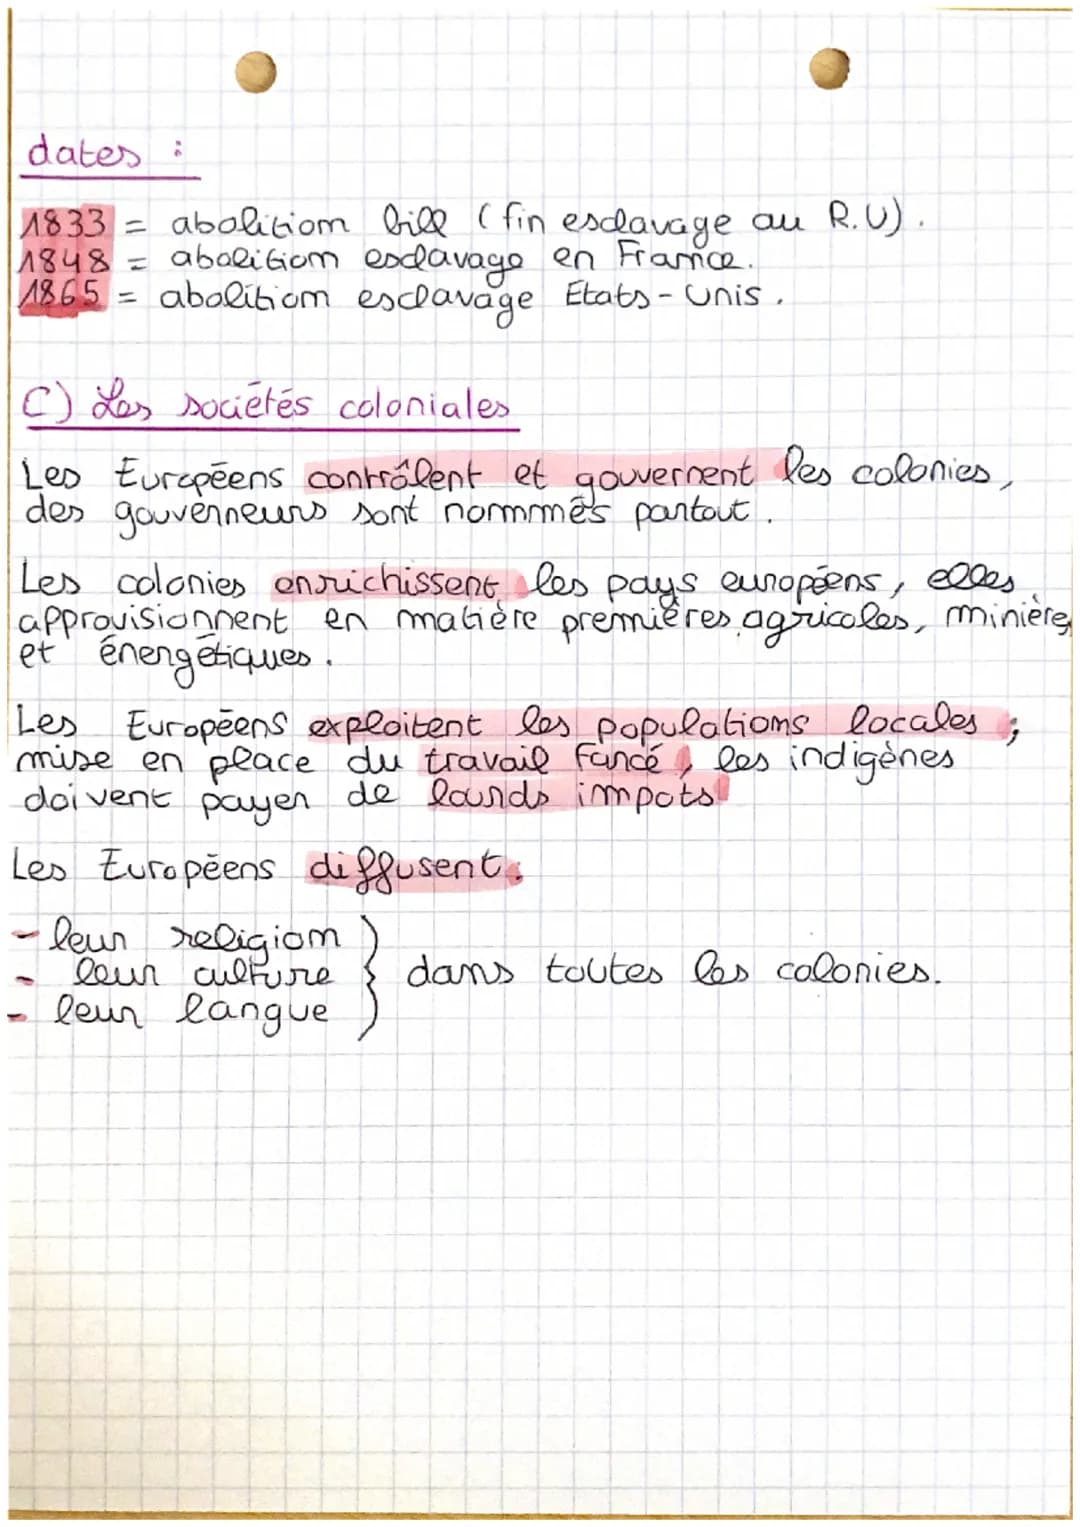 dates :
1833 = abolition bill (fin esclavage au R.U).
1848 = abolition esclavage en France.
1865 = abolition esclavage Etats-Unis.
C) Les sociétés coloniales
Les Européens contrôlent et gouvernent les colonies,
des gouverneurs sont nommmés partout.
Les colonies enrichissent les pays européens, elles
approvisionnent en matière premières agricoles, minière,
et énergétiques.
Les Européens exploitent les populations locales ;
mise en place du travail forcé, les indigènes
doivent payer de lourds impots
Les Européens diffusent :
- leur religion
- leur culture } dans toutes les colonies.
- leur langue